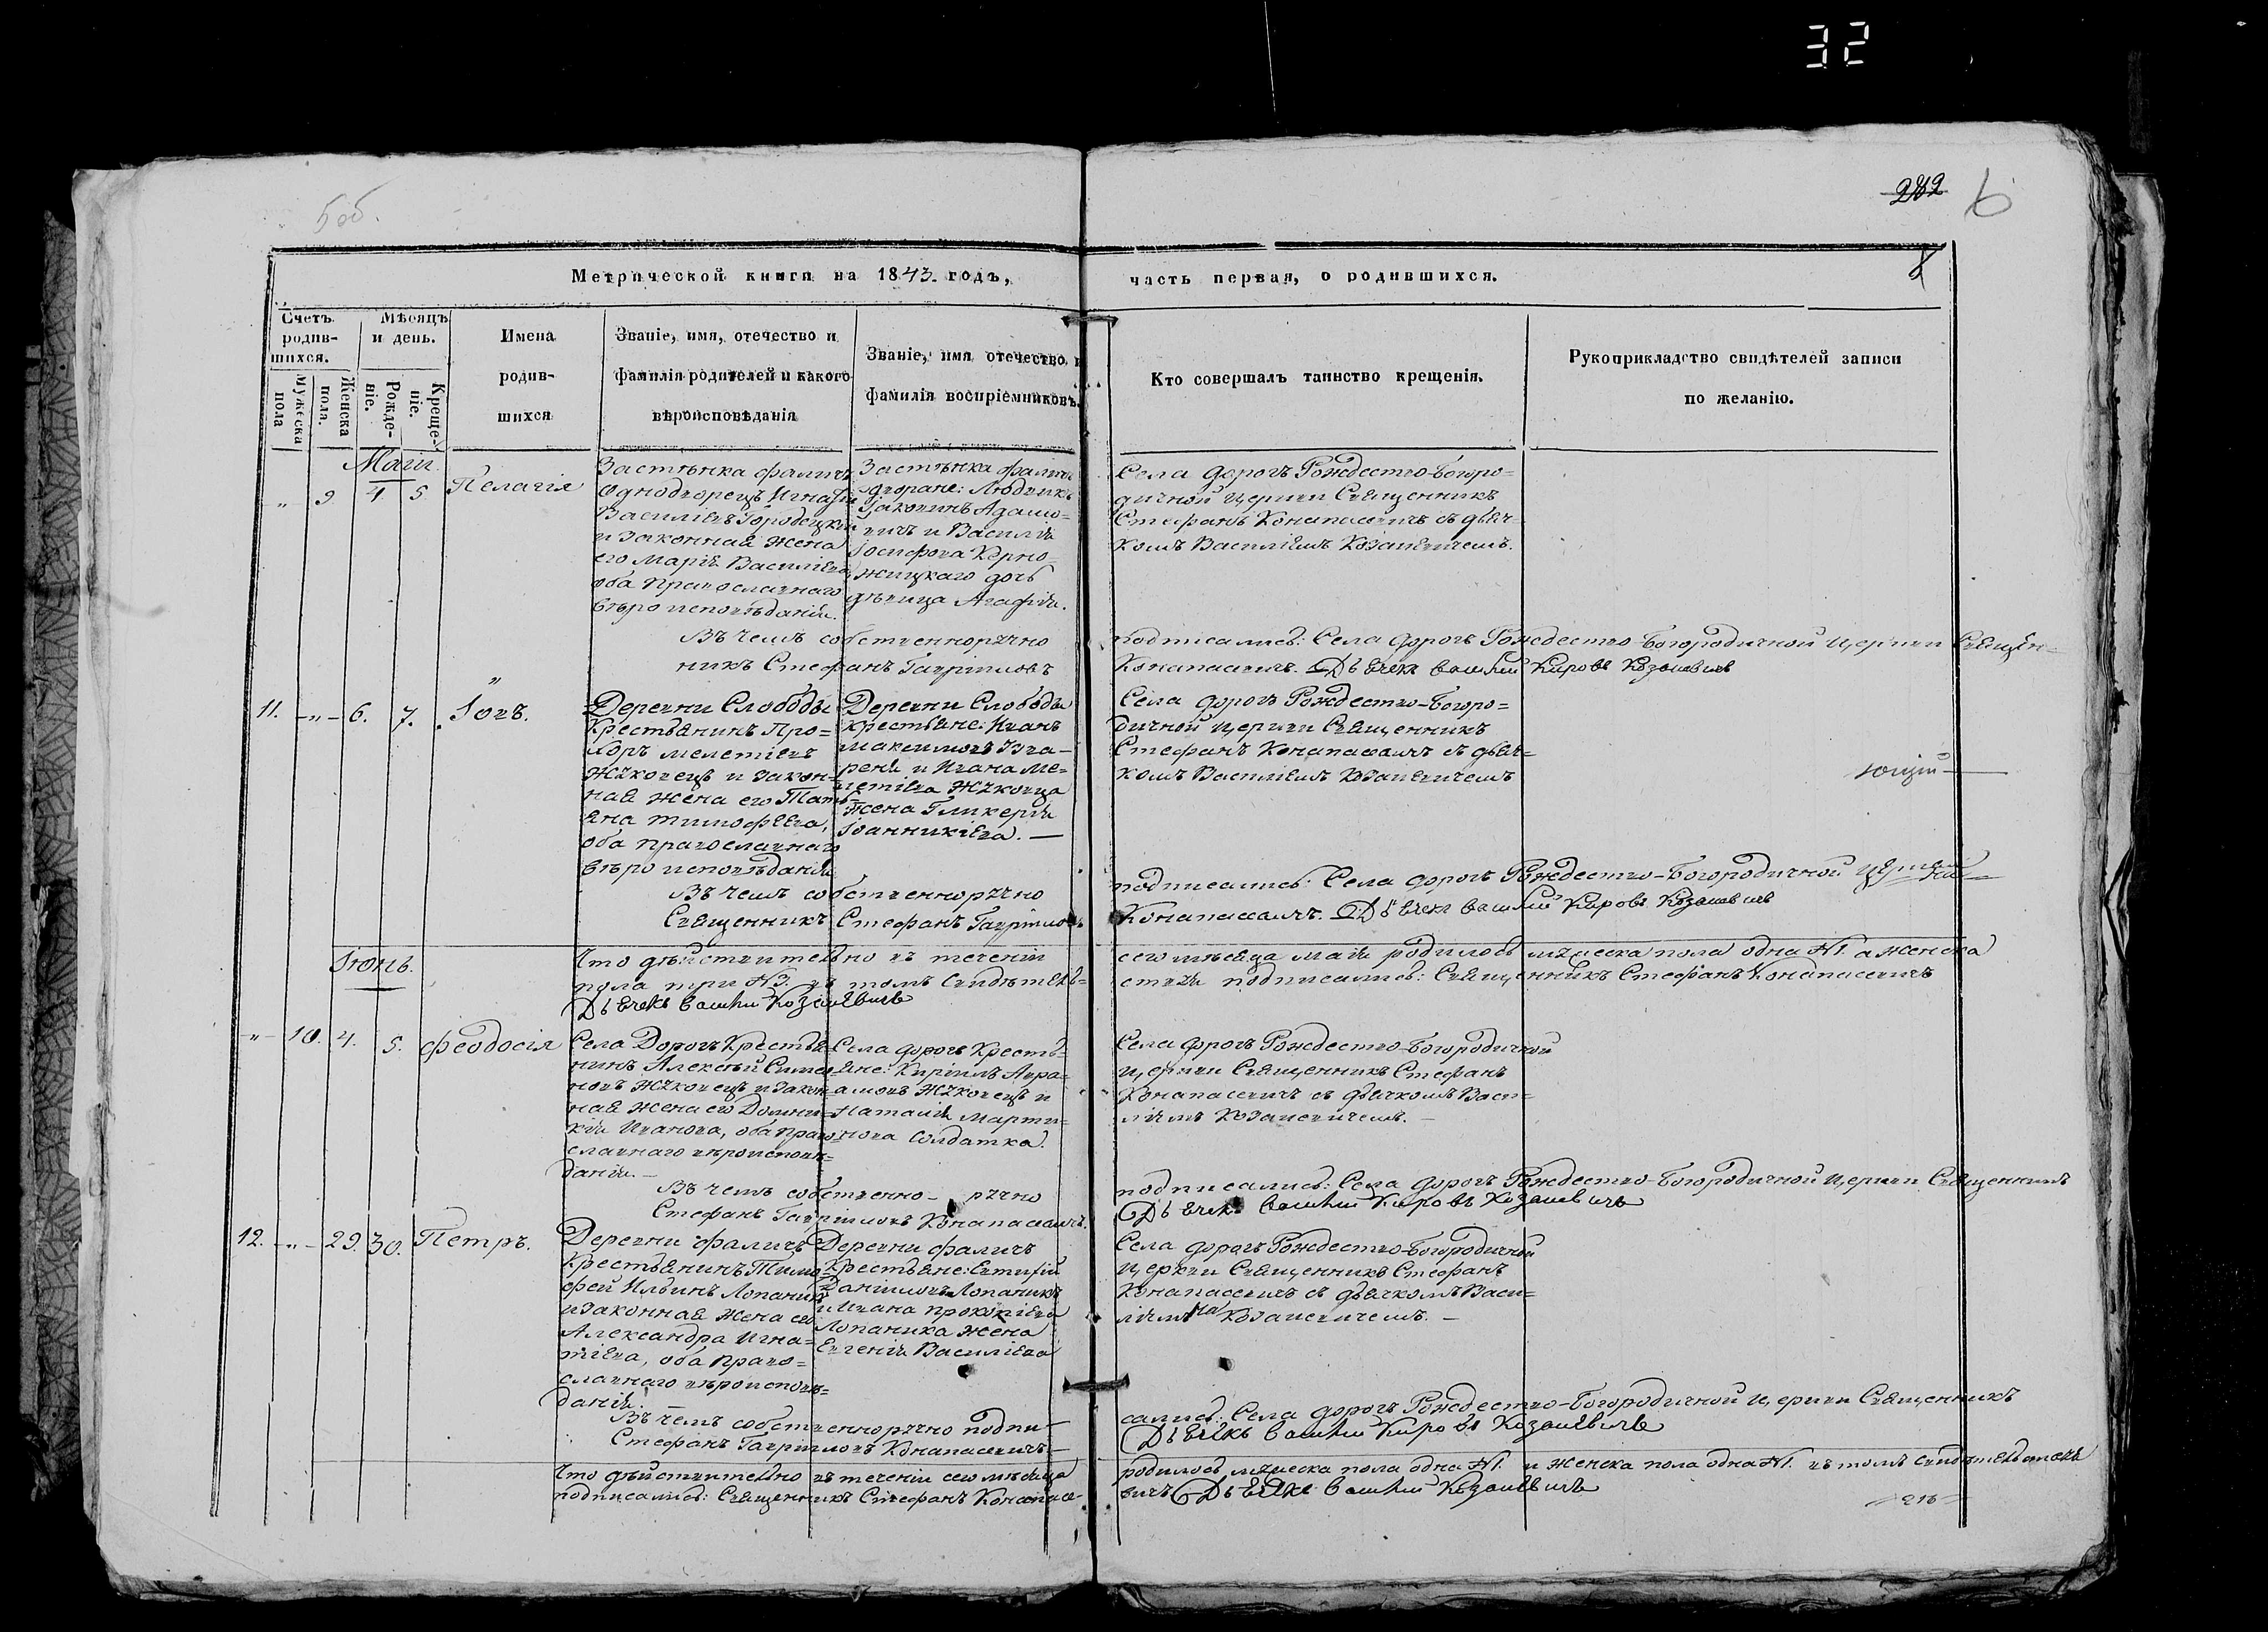 32
5 об.
282
6
Метрической книги на 1843. годъ,
часть первая, о родившихся.
Счетъ родив-
шихся.
Мужеска пола
Женска пола.
Мѣсяцъ и день.
Рожде-
ніе.
Креще-
ніе.
Имена
родив-
шихся
Званіе, имя, отечество и
фамилія родителей и какого
вѣроисповѣданія
Званіе, имя отечество и
фамилія воспріемниковъ.
Кто совершалъ таинство крещенія.
Рукоприкладство свидѣтелей записи
по желанію.
Маія
„ 9 4 5. Пелагія
Застѣнка Фаличъ
Однодворецъ Игнатій
Василіевъ Городецкій
и законная жена
его Марія Василіева,
оба православнаго
вѣроисповѣданія.
Застѣнка Фаличъ
дворяне: Людвикъ
Іакочинъ Адамо-
вичъ и Василія
Іосифова
жицкаго дочь
дѣвица Агафія.
Села Дорогъ Рождество-Богоро=
дичной церкви Священникъ
Стефанъ Конапасевичъ съ дьяч-
комъ Василіемъ Козакевичемъ.
Въ чемъ собственноручно
никъ Стефанъ Гавріиловъ
подписались: Села Дорогъ Рождество-Богородичной церкви Священ=
Конапасевичъ. Дьячекъ Василій Кировъ Козакевичъ
„
11. -„- 6. 7. Іовъ.
Деревни Слободы
Крестьянинъ Про=
хоръ Мелетіевъ
Жуковецъ и закон=
ная жена его Тать-
яна Тимофеева,
оба православнаго
вѣроисповѣданія
Деревни Слободы
крестьяне: Иванъ
Максимовъ
и Ивана Ме=
летіева Жуковца
жена Гликерія
Іоанникіева. —
Села Дорогъ Рождество-Богоро=
дичной церкви Священникъ
Стефанъ Конапасевичъ съ дьяч=
комъ Василіемъ Козакевичемъ
Въ чемъ собственноручно
Священникъ Стефанъ Гавріиловъ
подписались: Села Дорогъ Рождество-Богородичной церкви
Конапасевичъ. Дьячекъ Василій Кировъ Козакевичъ
Іюнь.
Что дѣйствительно въ теченіи
пола три №3. въ томъ свидѣтель=
Дьячекъ Василій Козакевичъ
сего мѣсяца маія родилось мужеска пола одна №1. а женска
ствуя подписались: Священникъ Стефанъ Конапасевичъ
-„- 10. 4. 5. Феодосія
Села Дорогъ Крестья-
нинъ Алексѣй Симео-
новъ Жуковецъ и закон-
ная жена его Домни=
кія Иванова, оба право=
славнаго вѣроисповѣ=
данія. —
Села Дорогъ Кресть=
яне: Кириллъ Авра=
амовъ Жуковецъ и
Наталія Марти=
нова Солдатка.
Села Дорогъ Рождество-Богородичной
церкви Священникъ Стефанъ
Конапасевичъ съ дьячкомъ Васи=
ліемъ Козакевичемъ. —
Въ чемъ собственно- ручно
Стефанъ Гавріиловъ Конапасевичъ.
подписались: Села Дорогъ Рождество-Богородичной церкви Священникъ
Дьячекъ Василій Кировъ Козакевичъ
12. -„- 29. 30. Петръ.
Деревни Фаличъ
Крестьянинъ Тимо
фей Ильинъ Лопаникъ
и законная жена его
Александра Игна=
тіева, оба право=
славнаго вѣроисповѣ=
данія.
Деревни Фаличъ
Крестьяне: Евтихій
Даніиловъ Лопаникъ
и Ивана Прокопіева
Лопаника жена
Евгенія Василіева
Села Дорогъ Рождество-Богородичной
церкви Священникъ Стефанъ
Конапасевичъ съ дьячкомъ Васи=
ліемъ Козакевичемъ. —
Въ чемъ собственноручно подпи-
Стефанъ Гавріиловъ Конапасевичъ-
сались: Села Дорогъ Рождество-Богородичной церкви Священникъ
Дьячекъ Василій Кировъ Козакевичъ
Что дѣйствительно въ теченіи сего мѣсяца
подписались: Священникъ Стефанъ Конапасе-
родилось мужеска пола одна №1. и женска пола одна №1. въ томъ свидѣтельствуя
вичъ Дьячекъ Василій Козакевичъ